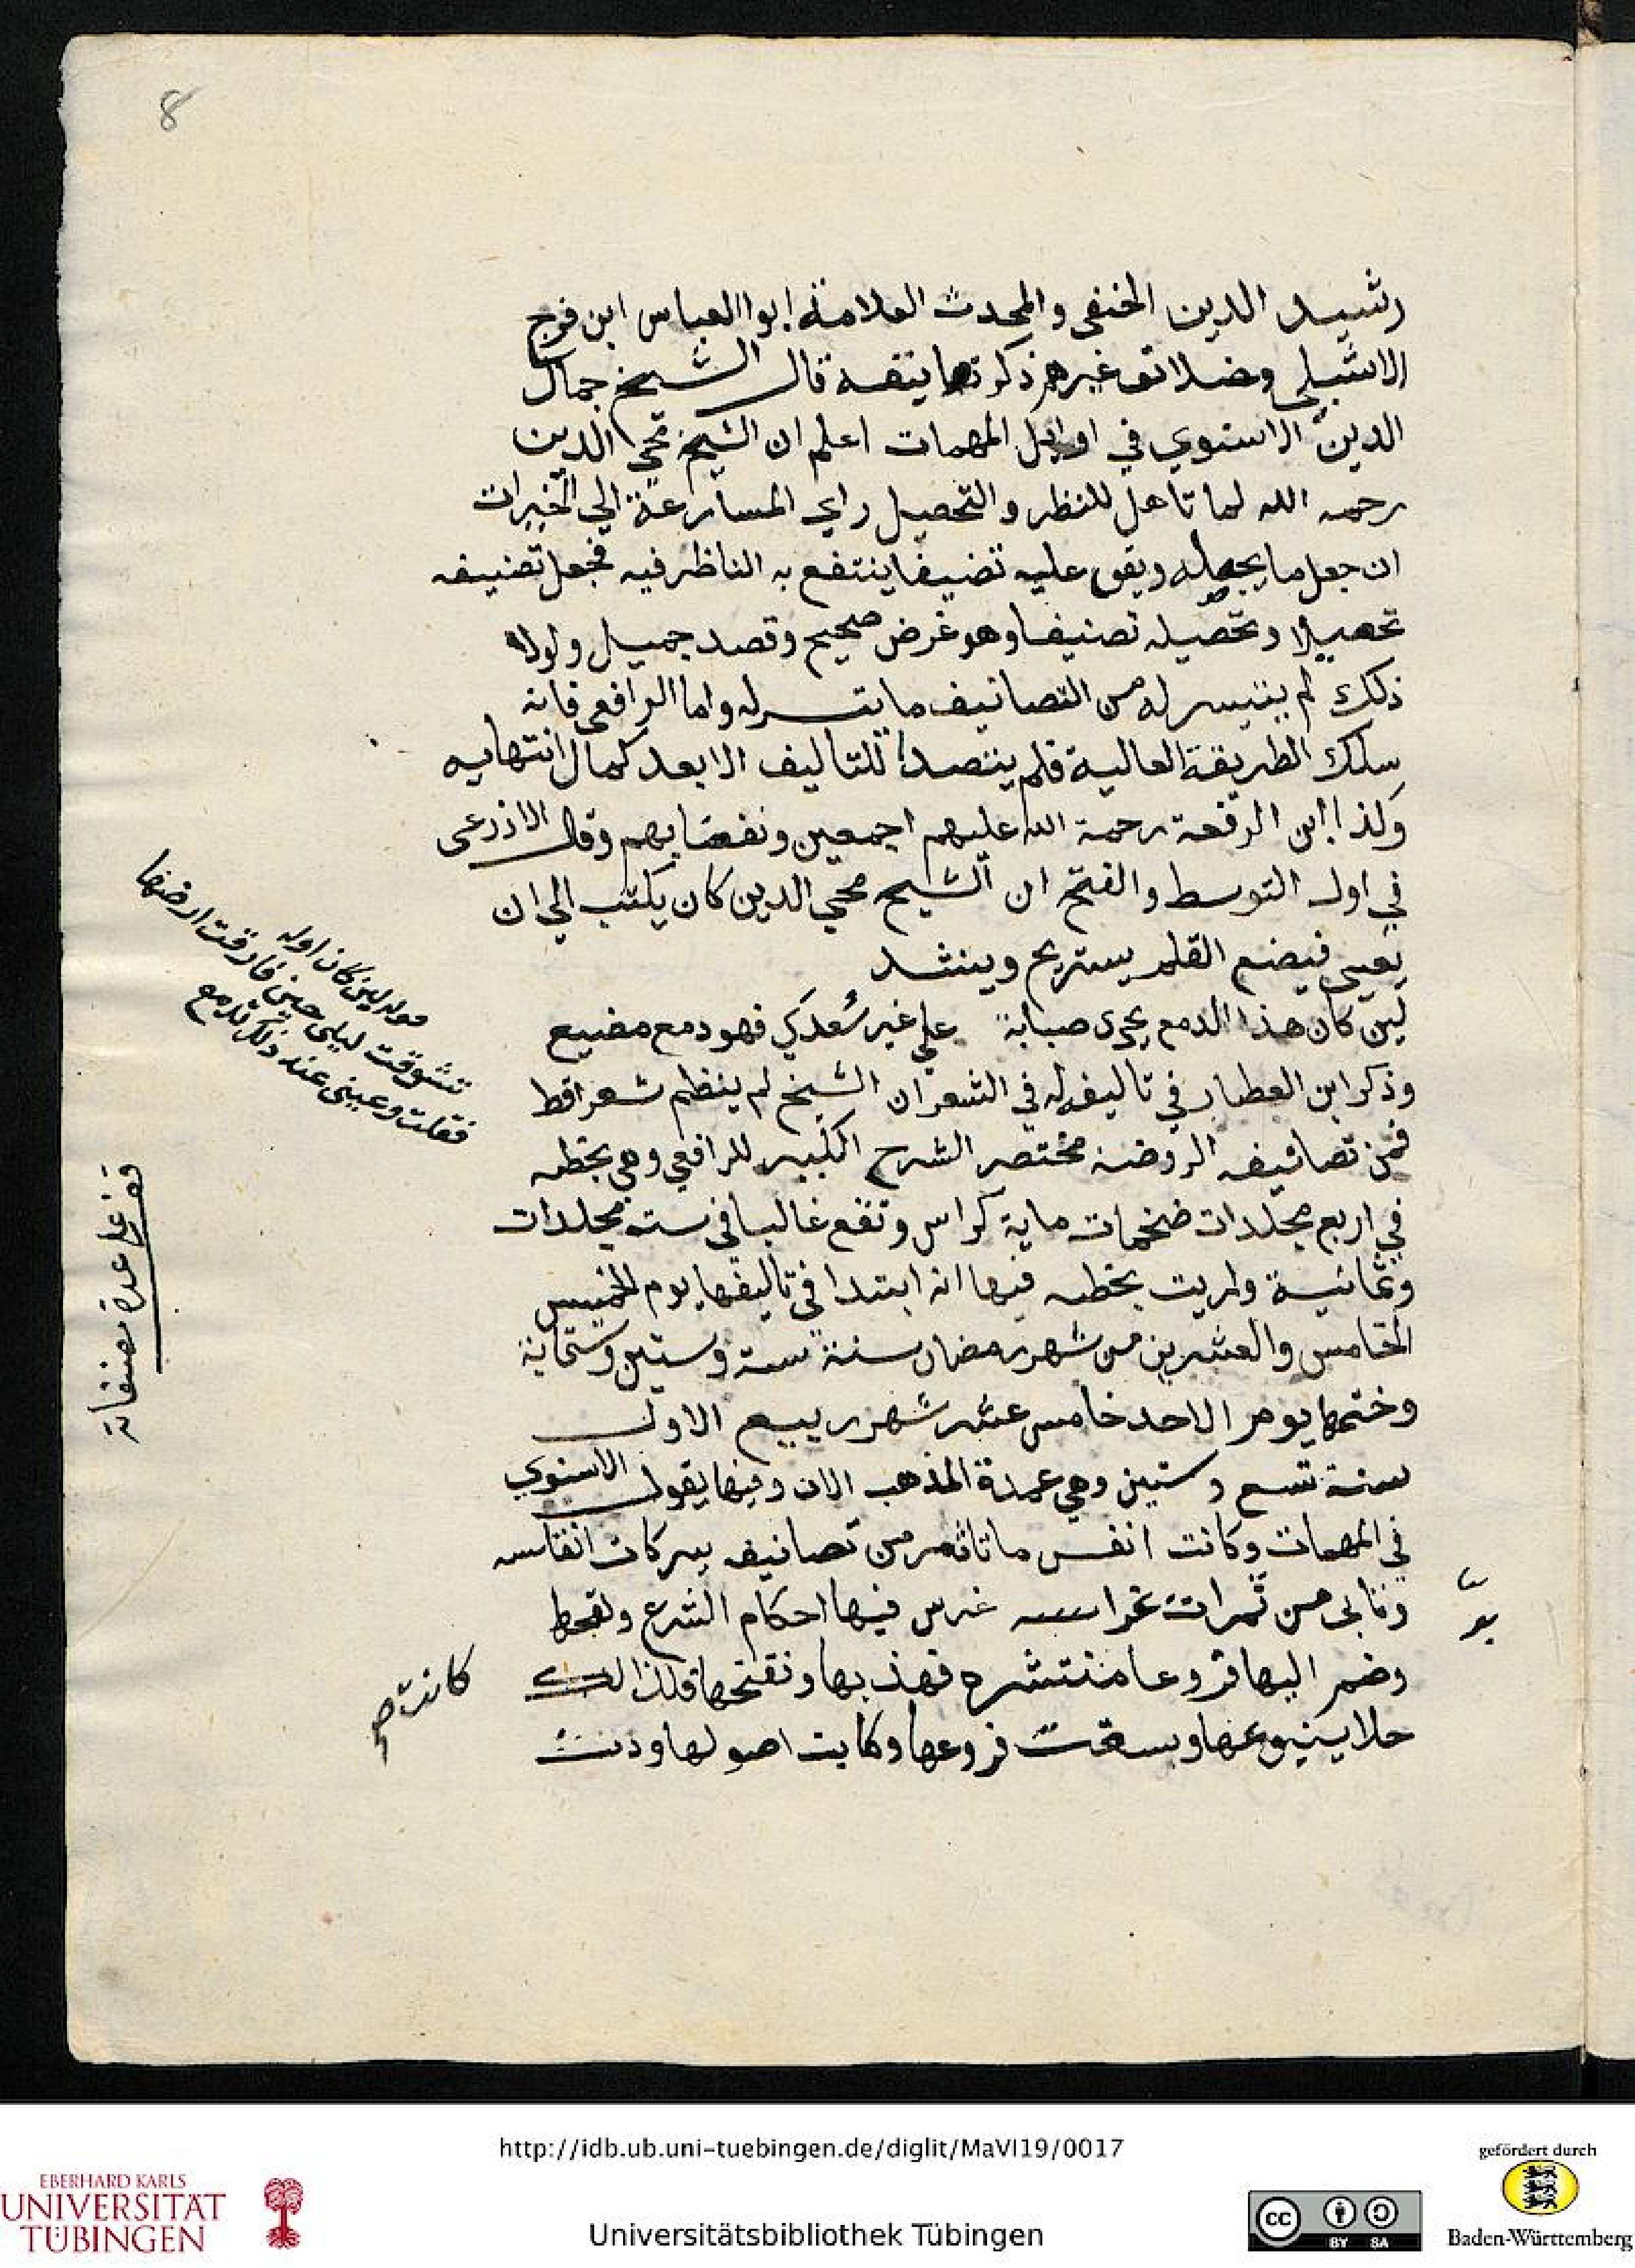 8
رشيد الدين الحنفي والمحدث العلامة ابوا العباس ابن فرج
الاشبيلي وخلائق غيرهم ذكر تصانيفه قال الشيخ جمال
الدين الاسنوي في اوايل المهمات اعلم ان الشيخ محي الدين
رحمه الله لما تاهل للنظر والتحصيل راي المسارعة الي الخيرات
ان جعل ما يحصله ويقف عليه تصنيفا ينتفع به الناظر فيه فجعل تصنيفه
تحصيلا وتحصيله تصنيفا وهو غرض صحيح وقصد جميل ولولا
ذلك لم يتيسر له من التصانيف ما تيسر له واما الرافعي فانه
سلك الطريقة العالية فلم يتصدا للتاليف الا بعد كمال انتهايه
وكذا ابن الرفعة رحمة الله عليهم اجمعين ونفعنا بهم وقال الاذرعي
في اول التوسط والفتح ان الشيخ محي الدين كان يكتب الي ان
يعيي فيضع القلم يستريح وينشد
لين كان هذا الدمع يجري صبابة علي غير سعدي فهو دمع مضيع
وذكر ابن العطار في تاليفه له في الشعر ان الشيخ لم ينظم شعرا قط
فمن تصانيفه الروضة مختصر الشرح الكبير للرافعي وهي بخطه
في اربع مجلدات ضخمات ماية كراس وتقع غالبا في ست مجلدات
وثمانية ورايت بخطه فيها انه ابتدا في تاليفها يوم الخميس
الخامس والعشرين من شهر رمضان سنة ستة وستين وستماية
وختمها يوم الاحد خامس عشر شهر ربيع الاول
سنة تسع وستين وهي عمدة المذهب الان وفيها يقول الاسنوي
في المهمات وكانت انفس ما تاثر من تصانيفه ببركات انفاسه
من ثمرات غراسه غرس فيها احكام الشرع ولقحها
وضم اليها فروعا منتشره فهذبها ونقحها فلذالك
حلا ينبوعها وبسقت فروعها وطابت اصولها ودنت
قوله لين كان اوله
تشوقت ليلى حين فارقت ارضها
فقلت وعيني عند ذلك تدمع
قف على عدة مصنفاته
http://idb.ub.uni-tuebingen.de/diglit/MaVI19/0017
EBERHARD KARLS
UNIVERSITÄT
TÜBINGEN
Universitätsbibliothek Tübingen
cc BY SA
gefördert durch
Baden-Württemberg